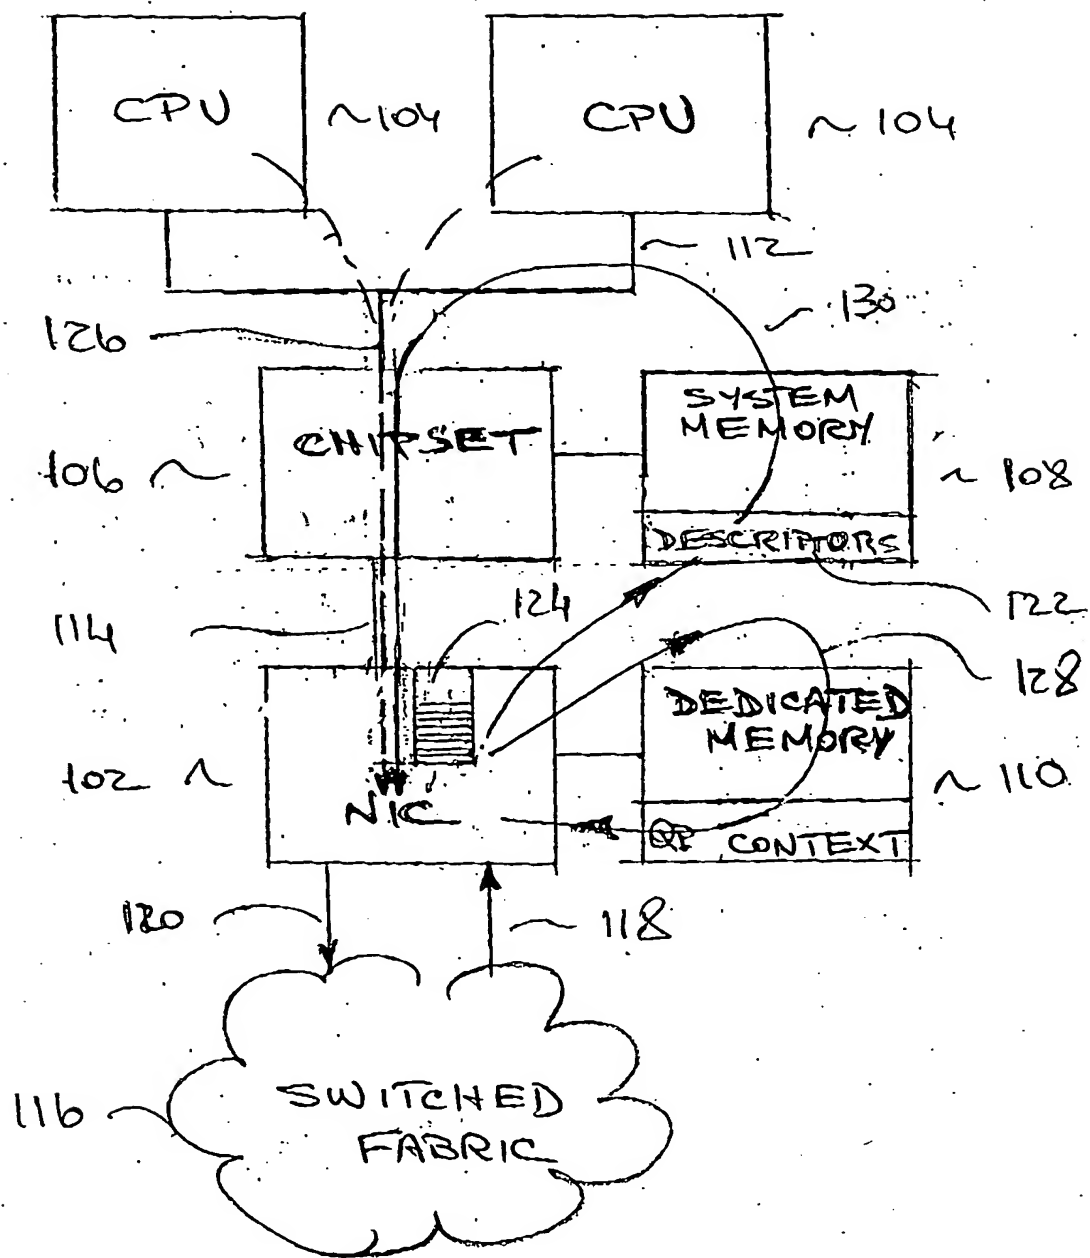 CPU
~104
CPU
~104
112
130
126
CHIPSET
SYSTEM
MEMORY
106
108
DESCRIPTORS
124
122
114
128
DEDICATED
MEMORY
102
NIC
110
QP CONTEXT
120
118
116
SWITCHED
FABRIC